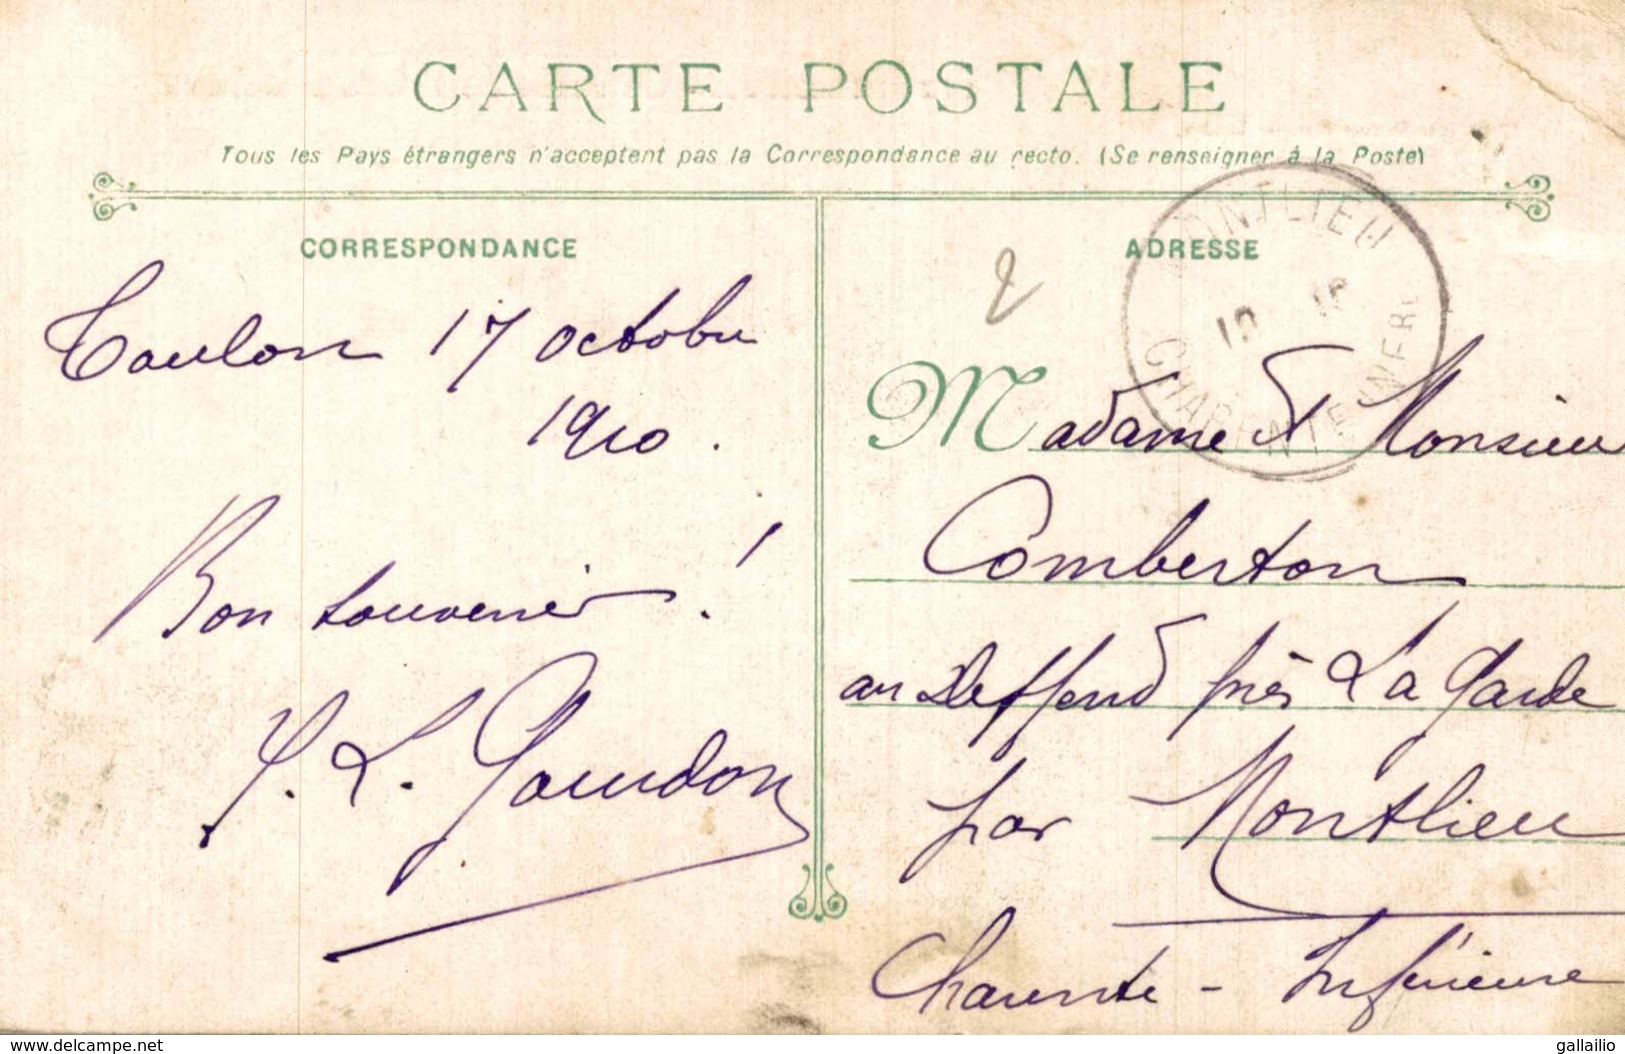 CARTE POSTALE
Tous les Pays étrangers n'acceptent pas la Correspondance au recto. (Se renseigner à la Poste)
CORRESPONDANCE
Toulon 17 Octobre
1910.
Bon souvenir !
L. Gourdon
ADRESSE
2
MONTLIEU
CHARENTE-INFRE
Madame & Monsieur
Comberton
au Deffend près La Garde
par Montlieu
Charente-Inférieure
delcampe.net
gallailio